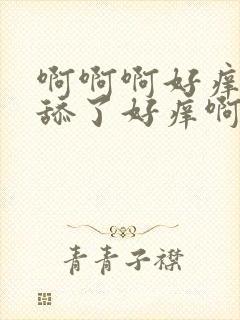 啊啊啊好痒
舔了好痒啊
青青子襟